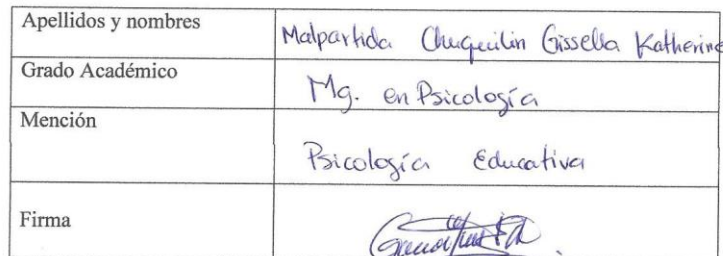 Apellidos y nombres
Malpartida Chuquilin Gissella Katherine
Grado Académico
Mg. en Psicología
Mención
Psicología Educativa
Firma